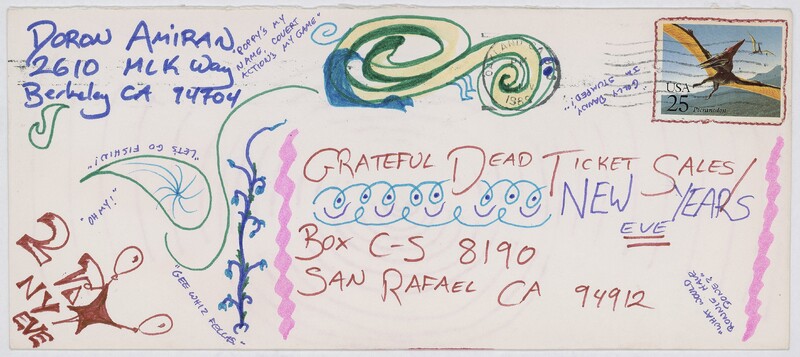 DORON AMIRAN
2610 MLK Way
Berkeley CA 94704
"POPPY'S MY
NAME, COVERT
ACTIONS MY GAME"
OAKLAND, CA
PM
1989
"GOLLY DANNY
I'M STUMPED!"
USA
25
Pteranodon
"LET'S GO FISHIN'!"
"OH MY!"
"GEE WHIZ FELLAS"
GRATEFUL DEAD TICKET SALES/
NEW YEARS
EVE
BOX C-S 8190
SAN RAFAEL CA 94912
2 TIX
NY
EVE
"WHAT WOULD
RONNIE HAVE
DONE?"